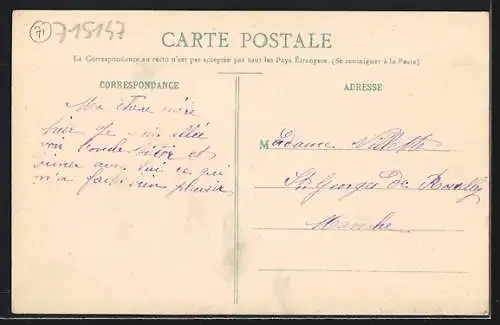 71 715147
CARTE POSTALE
La Correspondance au recto n'est pas acceptée par tous les Pays Étrangers. (Se renseigner à la Poste)
CORRESPONDANCE
ADRESSE
Ma chère mère
hier je suis allée
voir l'oncle et
dîner avec lui ce qui
m'a fait bien plaisir
Madame Villette
St Georges de
Manche